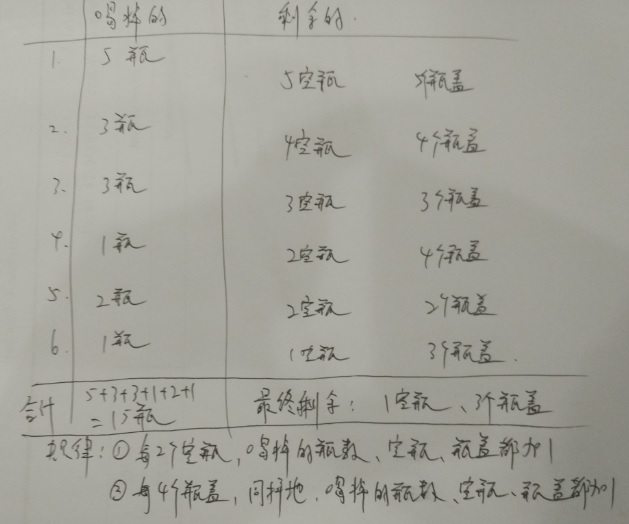 喝掉的 剩余的.
1. 5瓶
5空瓶 5个瓶盖
2. 3瓶
4空瓶 4个瓶盖
3. 3瓶
3空瓶 3个瓶盖
4. 1瓶
2空瓶 4个瓶盖
5. 2瓶
2空瓶 2个瓶盖
6. 1瓶
1空瓶 3个瓶盖.
合计 5+3+3+1+2+1
=15瓶 最终剩余: 1空瓶、3个瓶盖
规律: ① 每2个空瓶, 喝掉的瓶数、空瓶、瓶盖都加1
② 每4个瓶盖, 同样地, 喝掉的瓶数、空瓶、瓶盖都加1